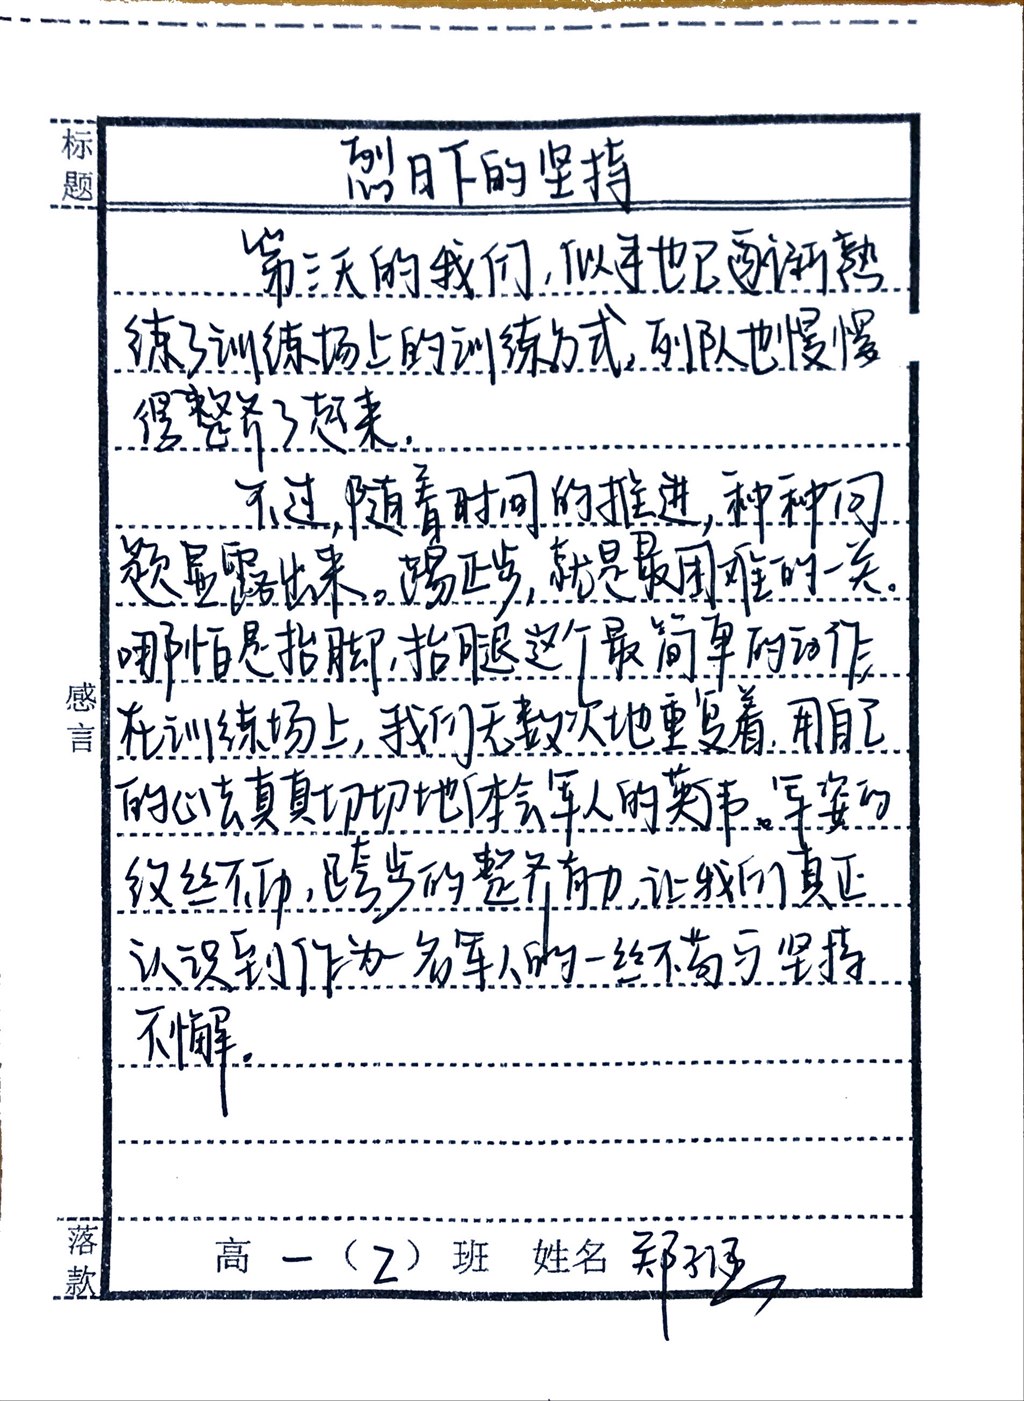 标题
烈日下的坚持
第三天的我们，似乎也已逐渐熟
练了训练场上的训练方式，列队也慢慢
得整齐了起来.
不过，随着时间的推进，种种问
题显露出来。踢正步，就是最困难的一关。
哪怕是抬脚，抬腿这个最简单的动作，
在训练场上，我们无数次地重复着，用自己
的心去真真切切地体会军人的英伟。军姿的
纹丝不动，跨步的整齐有力，让我们真正
认识到作为一名军人的一丝不苟与坚持
不懈。
感言
落款
高一（2）班 姓名 郑